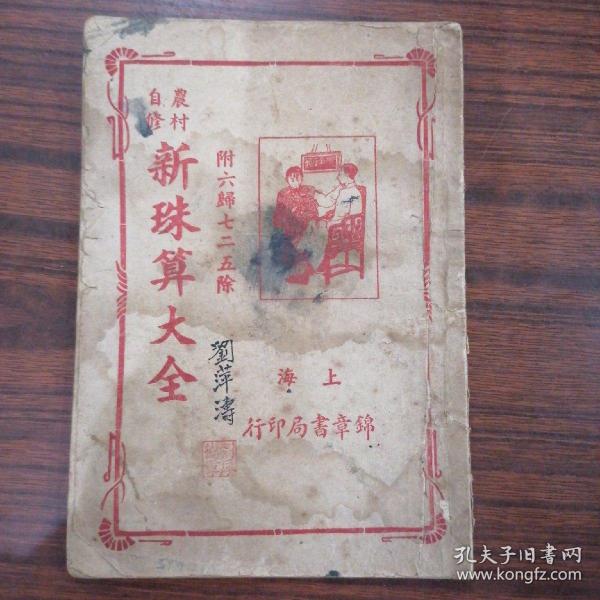 農村
自修
新珠算大全
附六歸七二五除
劉萍濤
上海
錦章書局印行
孔夫子旧书网
www.kongfz.com